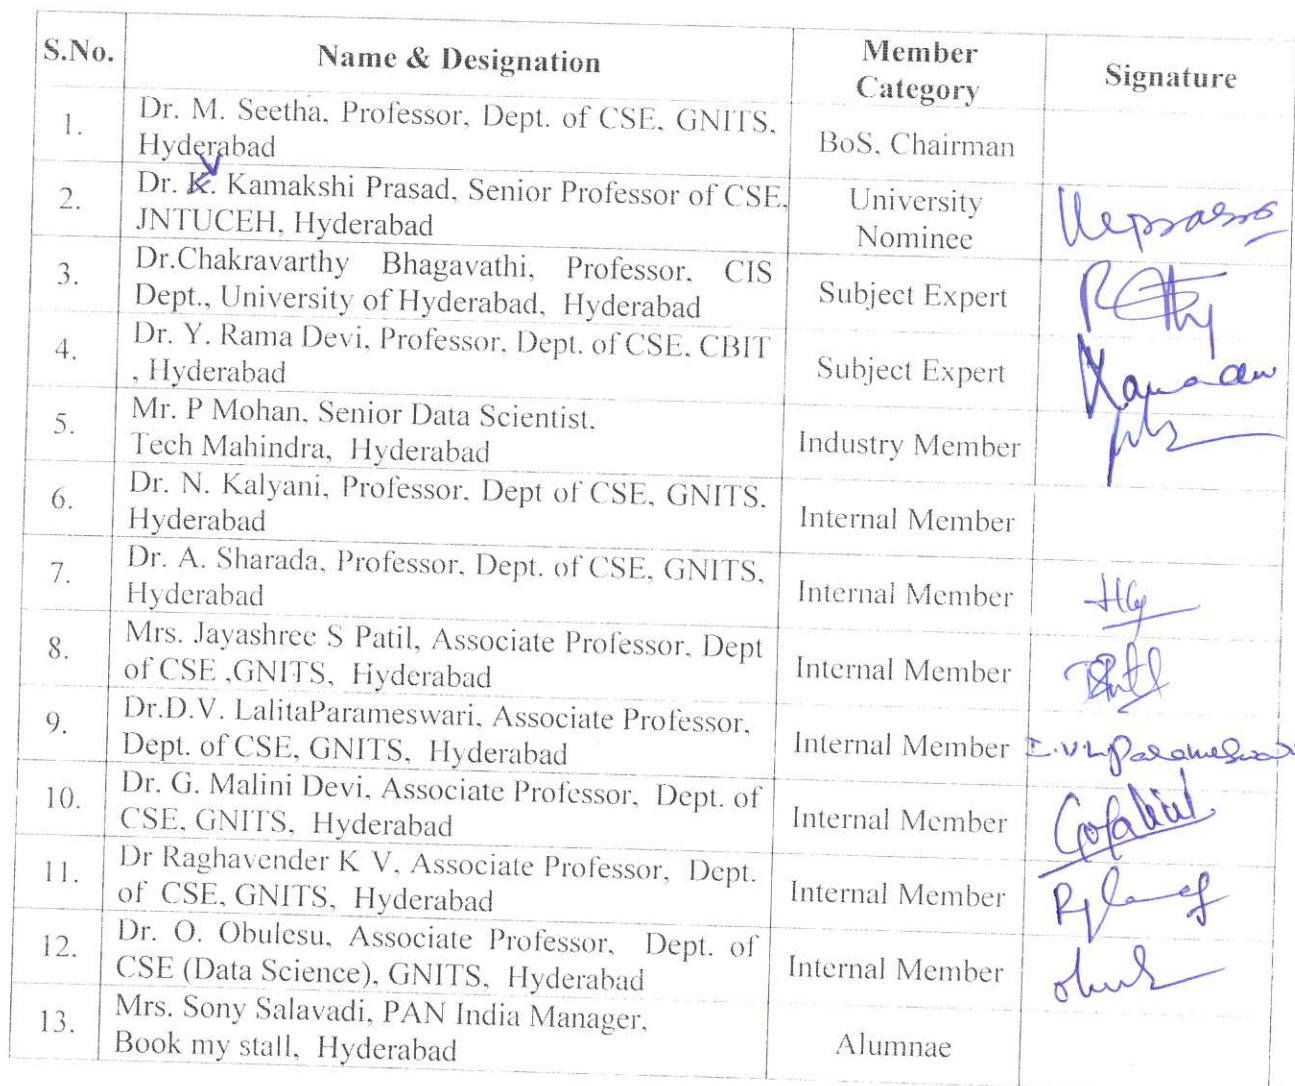 S.No. Name & Designation Member Category Signature
1. Dr. M. Seetha, Professor, Dept. of CSE, GNITS,
Hyderabad BoS, Chairman
2. Dr. V. Kamakshi Prasad, Senior Professor of CSE,
JNTUCEH, Hyderabad University Nominee
3. Dr.Chakravarthy Bhagavathi, Professor, CIS
Dept., University of Hyderabad, Hyderabad Subject Expert
4. Dr. Y. Rama Devi, Professor, Dept. of CSE, CBIT
, Hyderabad Subject Expert
5. Mr. P Mohan, Senior Data Scientist,
Tech Mahindra, Hyderabad Industry Member
6. Dr. N. Kalyani, Professor, Dept of CSE, GNITS,
Hyderabad Internal Member
7. Dr. A. Sharada, Professor, Dept. of CSE, GNITS,
Hyderabad Internal Member
8. Mrs. Jayashree S Patil, Associate Professor, Dept
of CSE ,GNITS, Hyderabad Internal Member
9. Dr.D.V. LalitaParameswari, Associate Professor,
Dept. of CSE, GNITS, Hyderabad Internal Member
10. Dr. G. Malini Devi, Associate Professor, Dept. of
CSE, GNITS, Hyderabad Internal Member
11. Dr Raghavender K V, Associate Professor, Dept.
of CSE, GNITS, Hyderabad Internal Member
12. Dr. O. Obulesu, Associate Professor, Dept. of
CSE (Data Science), GNITS, Hyderabad Internal Member
13. Mrs. Sony Salavadi, PAN India Manager,
Book my stall, Hyderabad Alumnae